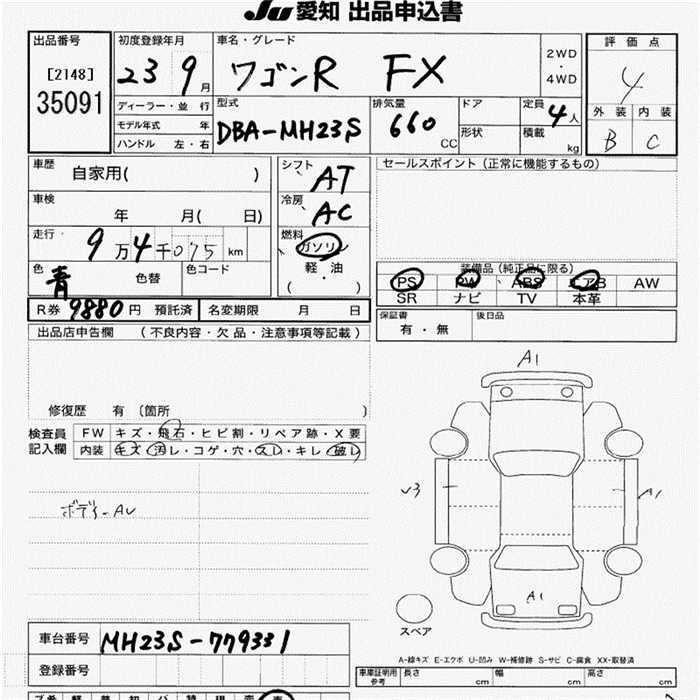 Ju 愛知 出品申込書
出品番号
[2148]
35091
初度登録年月
23 9月
ディーラー・並 行
モデル年式 年
ハンドル 左・右
車名・グレード
ワゴンR FX
2WD
・
4WD
型式
DBA-MH23S
排気量
660
CC
ドア
形状
定員
4人
積載
kg
評 価 点
4
外 装 内 装
B C
車歴
自家用( )
車検
年 月( 日)
走行
9万4千075 km
色
青
色替
色コード
シフト
AT
冷房
AC
燃料
ガソリン
軽・油
( )
セールスポイント (正常に機能するもの)
装備品 (純正品に限る)
PS PW ABS エアB AW
SR ナビ TV 本革
R券 9880 円 預託済 名変期限 月 日
保証書
有・無
後日品
出品店申告欄 (不良内容・欠品・注意事項等記載)
修復歴 有 (箇所 )
検査員
記入欄
FW キズ・飛石・ヒビ割・リペア跡・X要
内装 キズ・汚レ・コゲ・穴・スレ・キレ・破レ
ボデーAU
A1
A1
A1
スペア
A-線キズ E-エクボ U-凹み W-補修跡 S-サビ C-腐食 XX-取替済
車台番号 MH23S-779331
登録番号
車庫証明用
参考
長さ cm 幅 cm 高さ cm